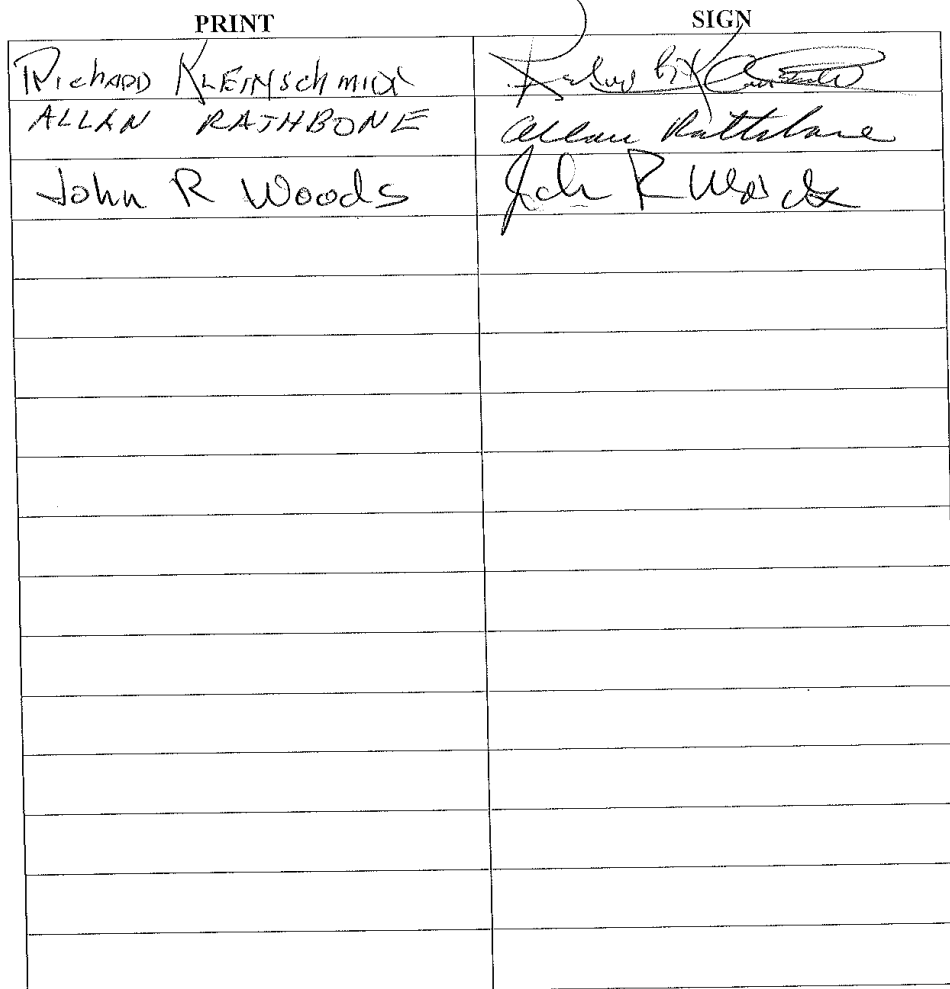 PRINT SIGN
Richard Kleinschmidt
ALLAN RATHBONE Allan Rathbone
John R Woods John R Woods